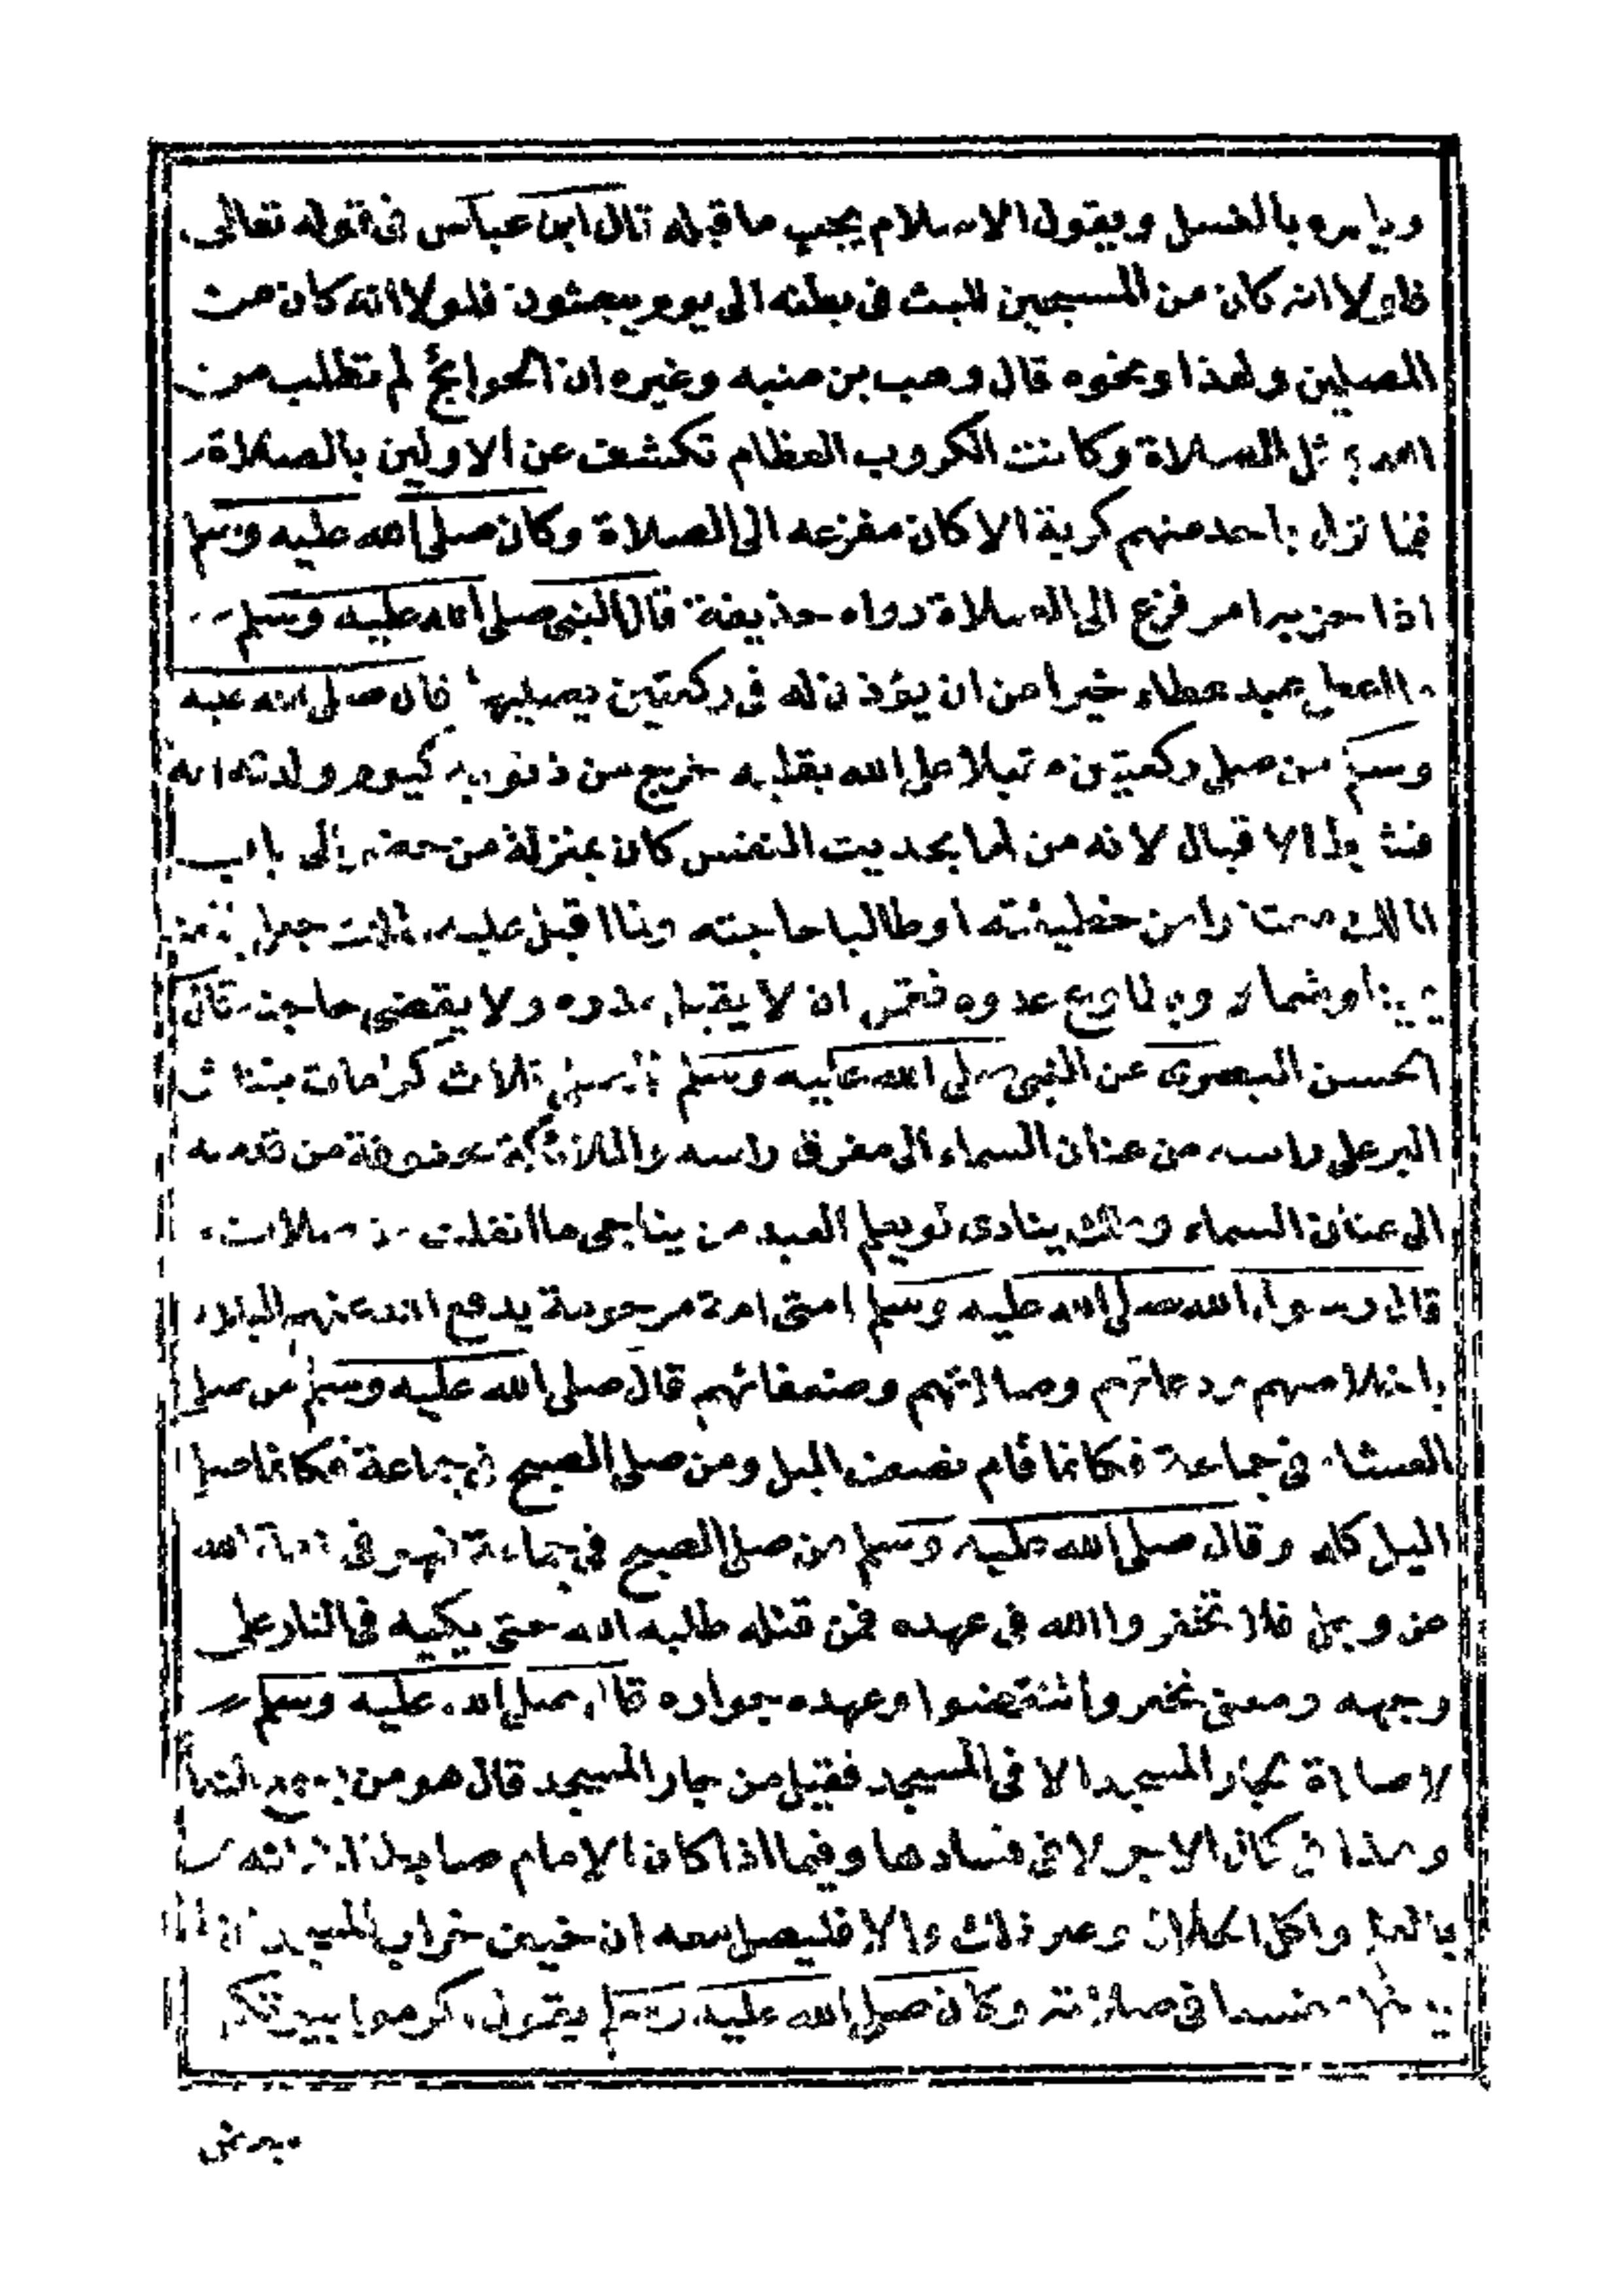 ويامره بالغسل ويقول الاسلام يجب ما قبله قال ابن عباس فى قوله تعالى
فلولا انه كان من المسبحين للبث فى بطنه الى يوم يبعثون فلولا انه كان من
المصلين ولهذا ونحوه قال وهب بن منبه وغيره ان الحوائج لم تطلب من
الله بمثل الصلاة وكانت الكروب العظام تكشف عن الاولين بالصلاة
فما نزل باحد منهم كربة الا كان مفزعه الى الصلاة وكان صلى الله عليه وسلم
اذا حزبه امر فزع الى الصلاة رواه حذيفة قال النبى صلى الله عليه وسلم
ما اعطى عبد عطاء خيرا من ان يؤذن له فى ركعتين يصليهما قال صلى الله عليه
وسلم من صلى ركعتين مقبلا على الله بقلبه خرج من ذنوبه كيوم ولدته امه
فشرط الاقبال لانه من لها بحديث النفس كان بمنزلة من حضر الى باب
الملك معتذرا من خطيئته او طالبا حاجته فلما اقبل عليه الملك جعل
يمينا وشمالا ويطاوع عدوه فحق ان لا يقبل عذره ولا يقضى حاجته قال
الحسن البصرى عن النبى صلى الله عليه وسلم للمصلى ثلاث كرامات يتناثر
البر على راسه من عنان السماء الى مفرق راسه والملائكة محفوفة من قدميه
الى عنان السماء وملك ينادى لو يعلم العبد من يناجى ما انفلت من صلاته
قال رسول الله صلى الله عليه وسلم امتى امة مرحومة يدفع الله عنهم البلاء
باخلاصهم ودعائهم وصلاتهم وضعفائهم قال صلى الله عليه وسلم من صلى
العشاء فى جماعة فكانما قام نصف اليل ومن صلى الصبح فى جماعة فكانما صلى
اليل كله وقال صلى الله عليه وسلم من صلى الصبح فى جماعة فهو فى ذمة الله
عز وجل فلا تخفروا الله فى عهده فمن قتله طلبه الله حتى يكبه فى النار على
وجهه ومعنى تخفروا تنقضوا وعهده جواره قال صلى الله عليه وسلم
لا صلاة لجار المسجد الا فى المسجد فقيل من جار المسجد قال هو من يسمع النداء
وهذا فى كمال الاجر لا فى فسادها وفيما اذا كان الامام صالحا
واكل الحلال وغير ذلك والا فليصل معه ان خيف خراب المسجد
فى صلاته وكان صلى الله عليه وسلم يقول اكرموا بيوتكم
ببعض